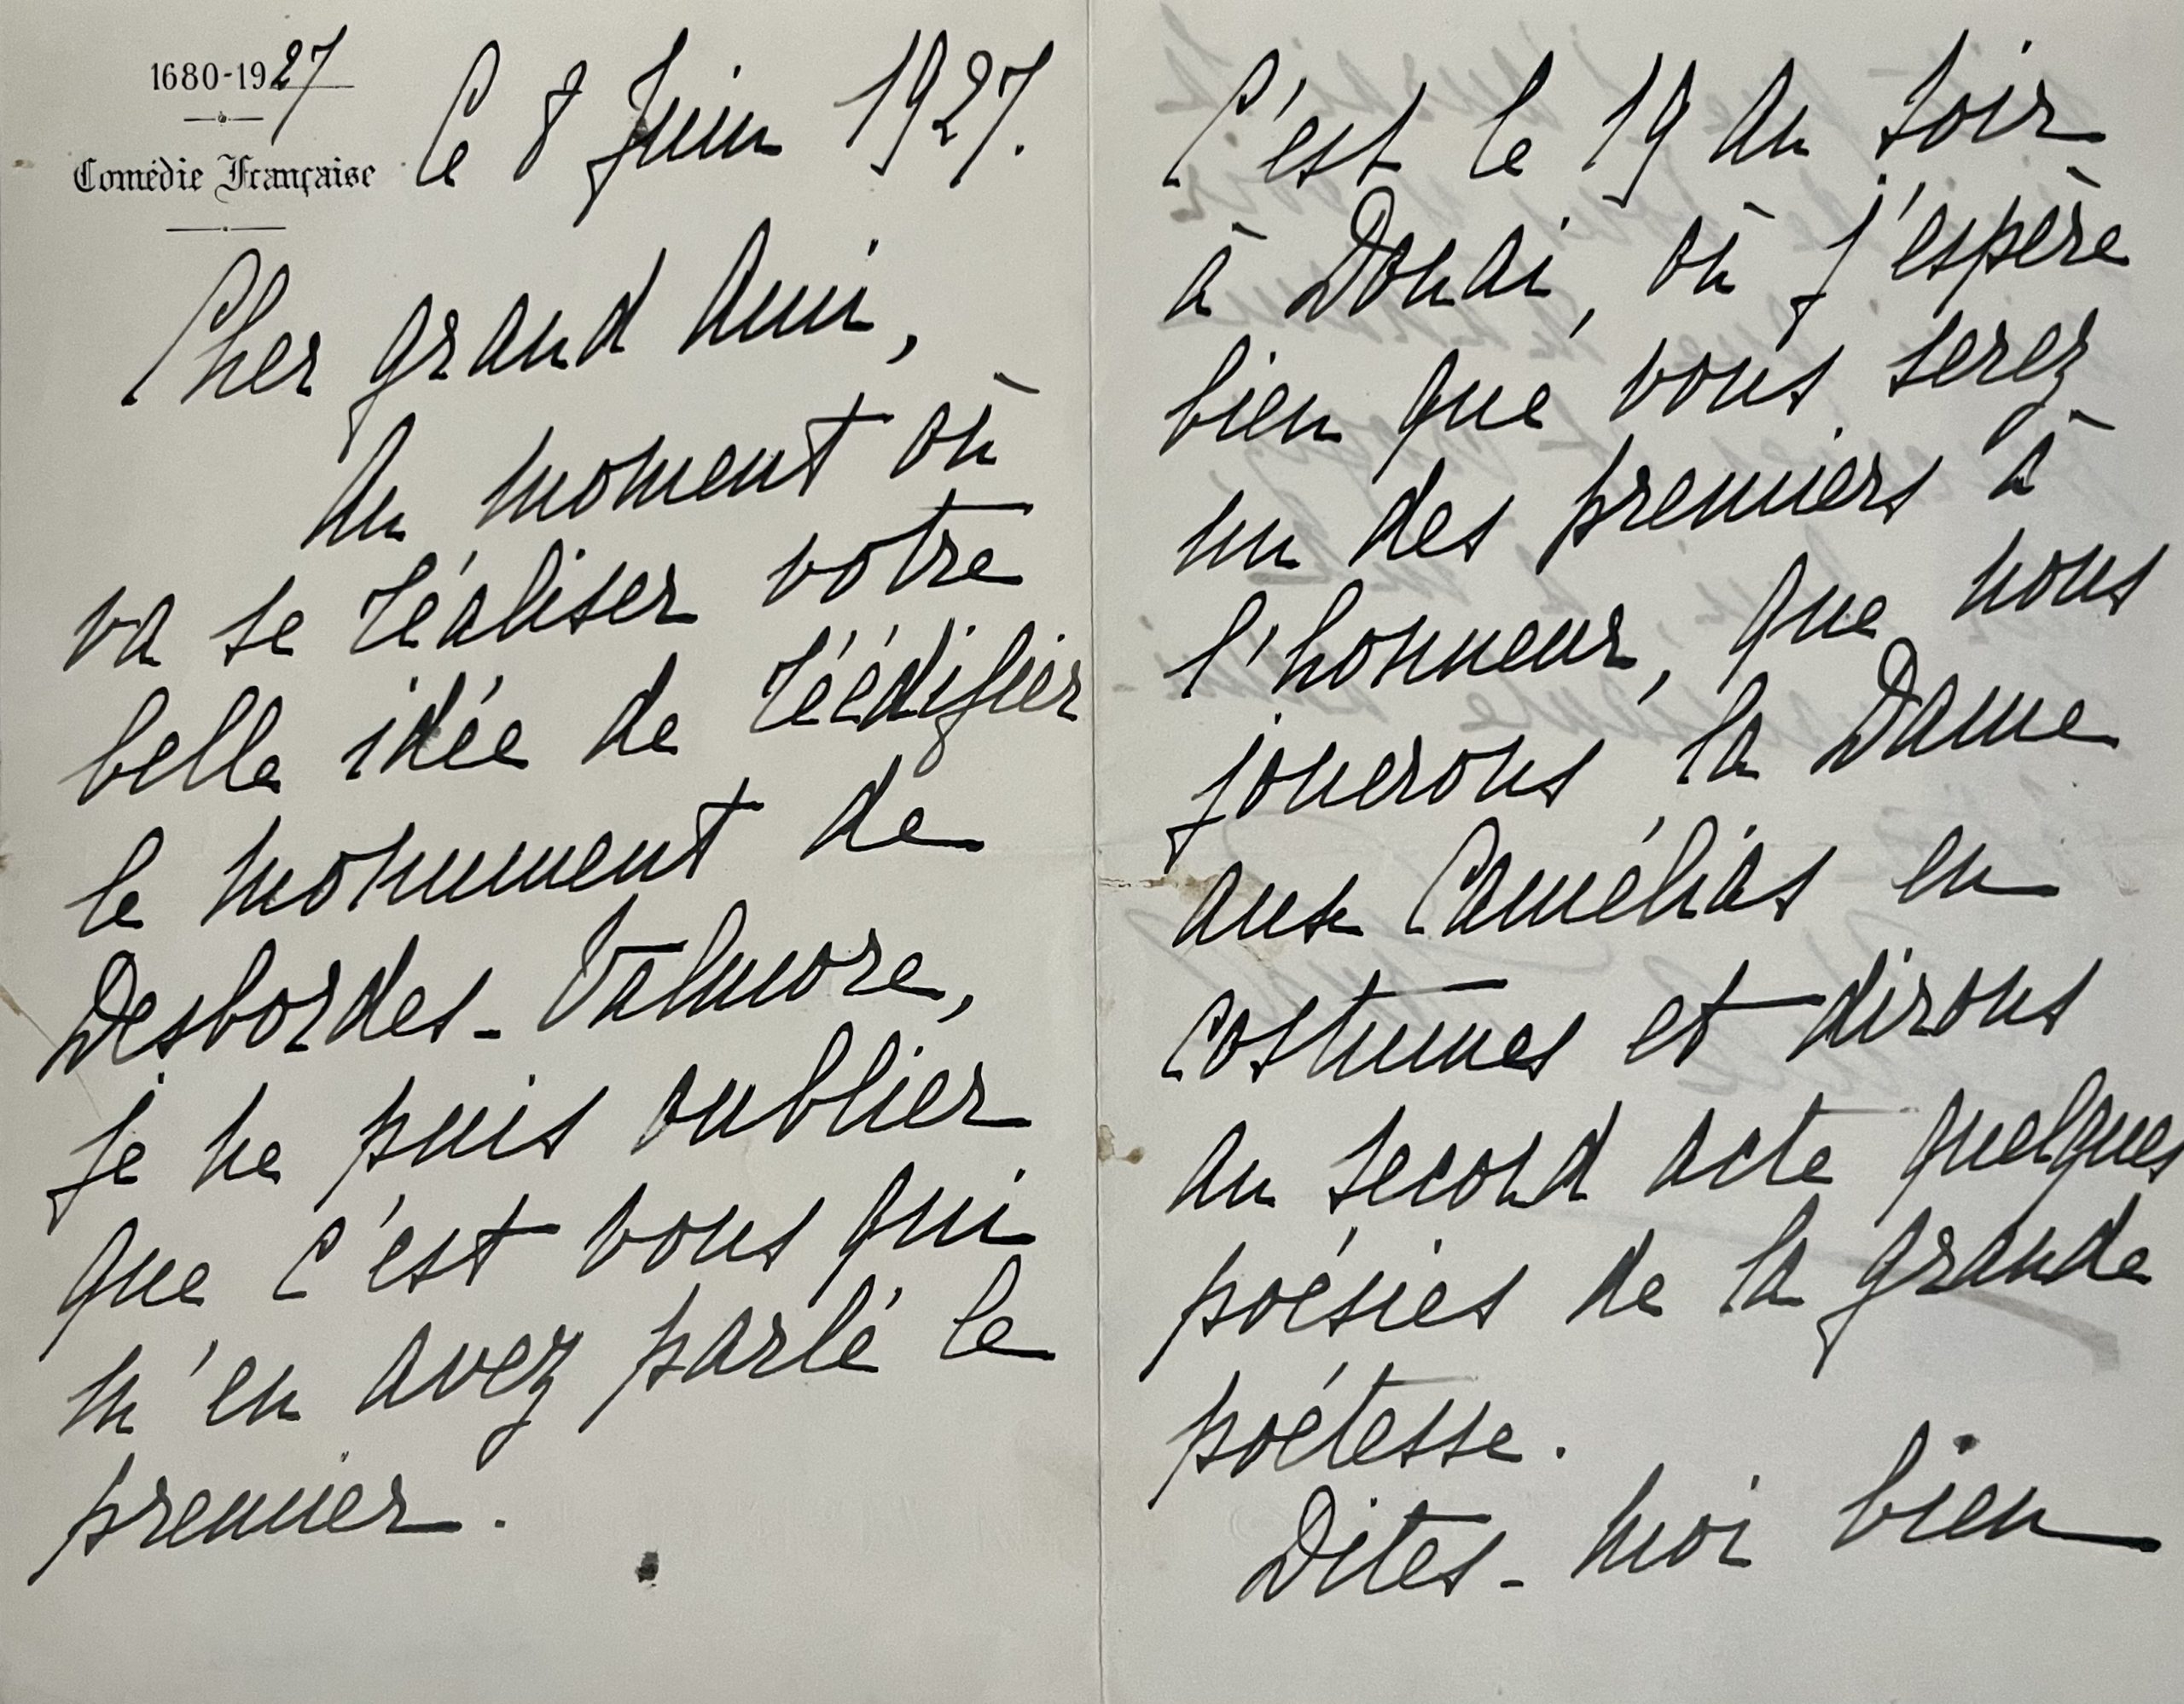 1680-1927
Comédie Française
Le 8 Juin 1927.
Cher grand Ami,
Au moment où
va se réaliser votre
belle idée de réédifier
le monument de
Desbordes-Valmore,
je ne puis oublier
que c'est vous qui
m'en avez parlé le
premier.
C'est le 19 au soir
à Douai, où j'espère
bien que vous serez
un des premiers à
l'honneur, que nous
jouerons la Dame
aux Camélias en
costumes et dirons
au second acte quelques
poésies de la grande
poétesse.
Dites-moi bien